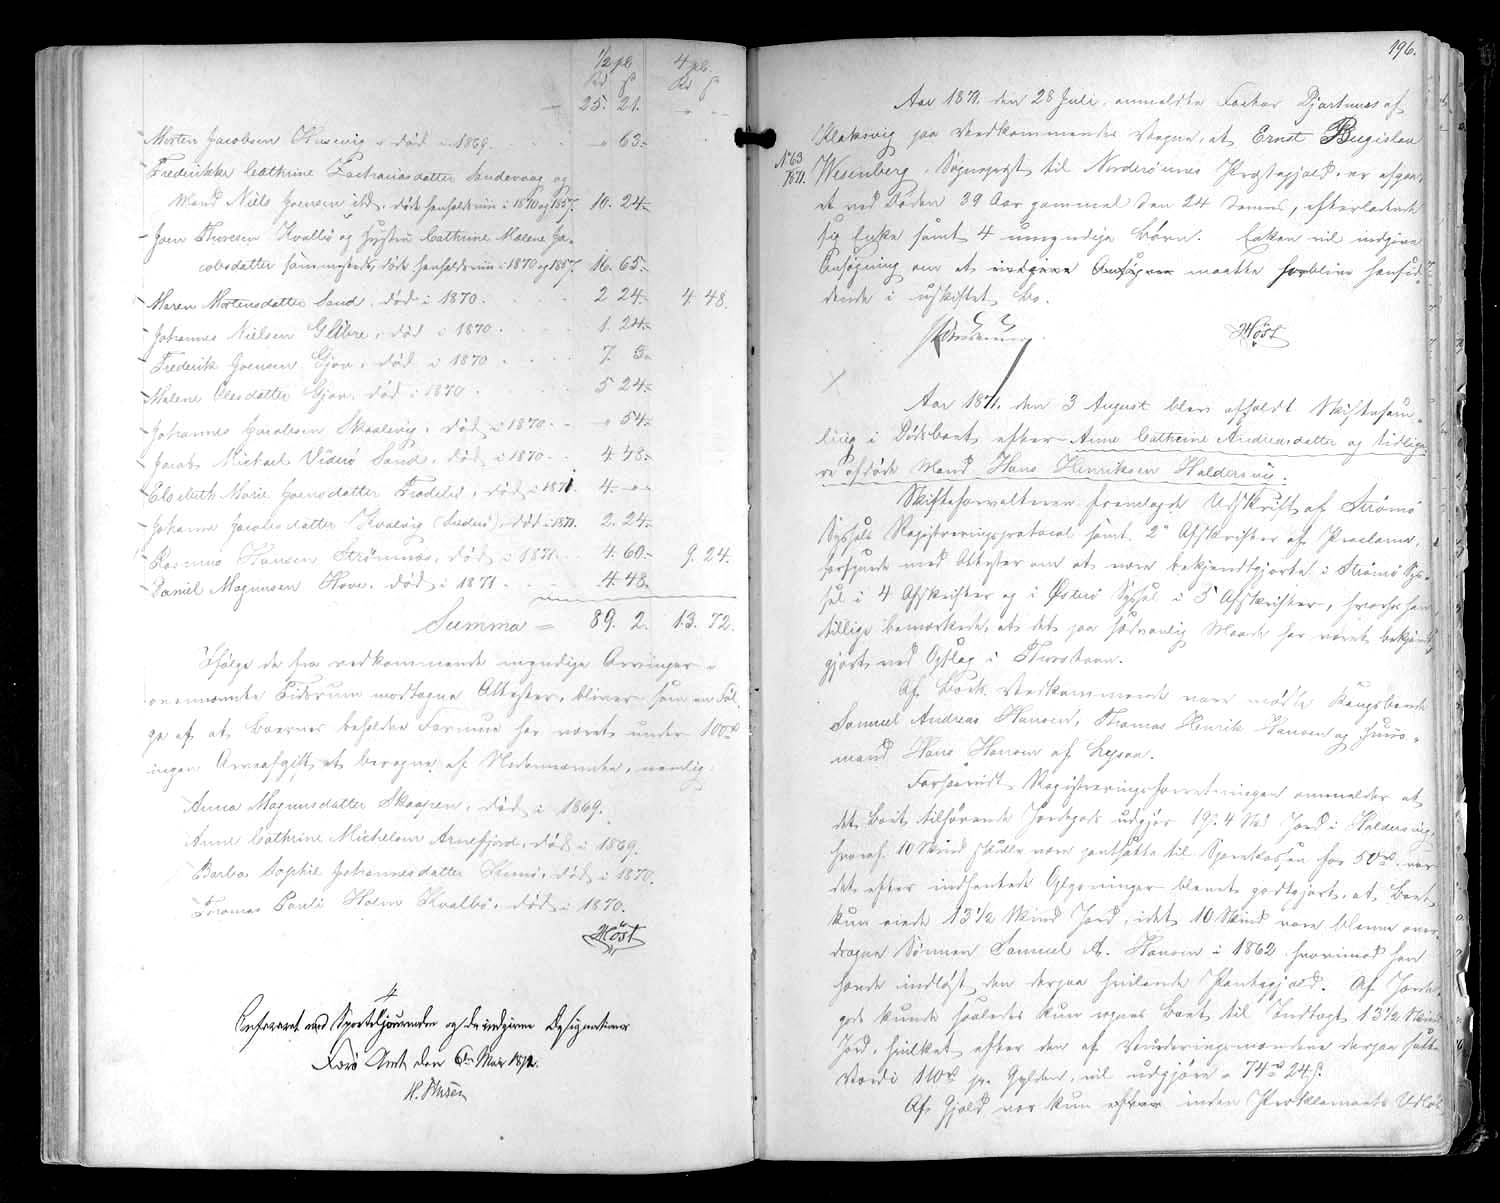 ½ pCt 4 pCt.
Rd ß Rd ß
25. 21. " "
Morten Jacobsen Husevig, død i 1869. " 63.
Frederikke Cathrine Zachariasdatter Sandevaag og
Mand Niels Joensen ibd., døde henholdsviis i 1870 og 1857. 10. 24.
Joen Thuresen Kvalbø og Hustru Cathrine Malene Ja-
cobsdatter sammesteds, døde henholdsviis i 1870 og 1857. 16. 65.
Maren Mortensdatter Sand, død i 1870. 2 24. 4. 48.
Johannes Nielsen Glibre, død i 1870. 1. 24.
Frederik Joensen Gjov, død i 1870. 7. 3.
Malene Olesdatter Gjov, død i 1870. 5 24.
Johannes Jacobsen Skaalevig, død i 1870. " 54.
Jacob Michael Viderø Sand, død i 1870. 4 48.
Elsebeth Marie Joensdatter, død i 1871. 4. "
Johanne Jacobsdatter Kvalvig, død i 1871. 2. 24.
Rasmus Hansen Strømnæs, død i 1871. 4. 60. 9. 24.
Daniel Magnussen Hove, død i 1871. 4. 48.
Summa = 89. 2. 13. 72.
Ifølge de fra vedkommende myndige Arvinger
ovennævnte modtagne Attester, bliver som en Føl-
ge af at Boernes beholdne Formue har været under 100 rd
ingen Arveafgift at beregne af Nedennævnte, nemlig:
Anna Magnusdatter Skaapen, død i 1869.
Anne Cathrine Michelsen Arnefjord, død i 1869.
Barba Sophie Johannesdatter Kunø, død i 1870.
Thomas Pauli Holm Kvalbø, død i 1870.
Høst
Confereret med Sporteljournalen og de indgivne Designationer
Færø Amt den 6te Mai 1872.
196.
Aar 1871. den 28 Juli, anmeldte Factor Djurhuus af
Klaksvig paa Vedkommendes Vegne, at Ernst Bugislav
No 63
1871.
Wesenberg, Sognepræst til Norderøernes Præstegjæld, er afgaa-
et ved Døden 39 Aar gammel den 24 dennes, efterladende
sig Enke samt 4 umyndige Børn. Enken vil indgive
Ansøgning om at indgive Ansøgning maatte forblive hensid-
dende i uskiftet Bo.
Høst
Aar 1871. den 3 August blev afholdt Skiftesam-
ling i Dødsboet efter Anne Cathrine Andreasdatter og tidlige-
re afdøde Mand Hans Henriksen Haldersvig.
Skifteforvalteren fremlagde Udskrift af Strømø
Syssels Registreringsprotocol samt 2de Afskrifter af Proclama,
forsynede med Attester om at være bekjendtgjorte i Strømø Sys-
sel i 4 Afskrifter og i Østerø Syssel i 5 Afskrifter, hvorhos han
tillige bemærkede, at det paa sædvanlig Maade har været bekjendt-
gjort ved Opslag i Thorshavn.
Af Boets Vedkommende vare mødte Kongsbonde
Samuel Andreas Hansen, Thomas Henrik Hansen og Huus-
mand Hans Hansen af
Forsaavidt Registreringsforretningen ommelder at
det Boet tilhørende Jordegods udgjør 19 G. 4 Sk. Jord i Haldersvig,
hvoraf 10 Skind skulle være pantsatte til Sparekassen for 50 rd. var
det efter indhentede Oplysninger blevet godtgjort, at Boet
kun eiede 13½ Skind Jord, idet 10 Skind vare blevne over-
dragne Sønnen Samuel A. Hansen i 1862 hvorimod han
havde indløst den derpaa hvilende Pantegjæld. Af Jorde-
gods kunde saaledes kun Boet til Indtægt 13½ Skind
Jord, hvilket efter den af Vurderingsmændene derpaa satte
Værdi 110 rd. pr. Gylden, vil udgjøre = 74 rd 24 ß.
Af Gjæld var kun inden Proklamaets Udløb